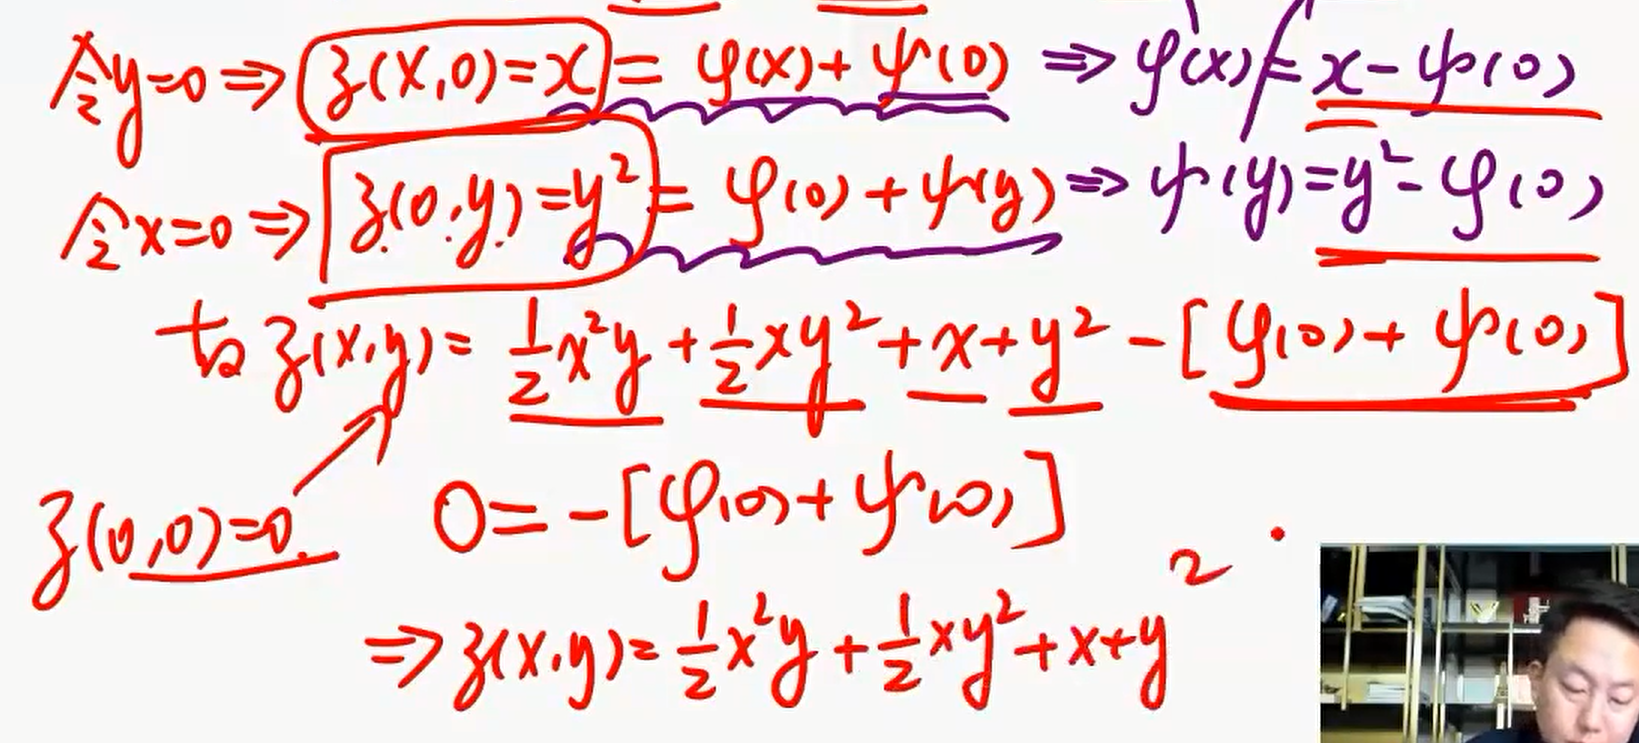 令y=0 ⇒ z(x,0)=x = φ(x)+ψ(0) ⇒ φ(x)=x-ψ(0)
令x=0 ⇒ z(0,y)=y² = φ(0)+ψ(y) ⇒ ψ(y)=y²-φ(0)
故 z(x,y)= ½x²y + ½xy² + x + y² - [φ(0)+ψ(0)]
z(0,0)=0. 0=-[φ(0)+ψ(0)]
⇒ z(x,y)= ½x²y + ½xy² + x + y²